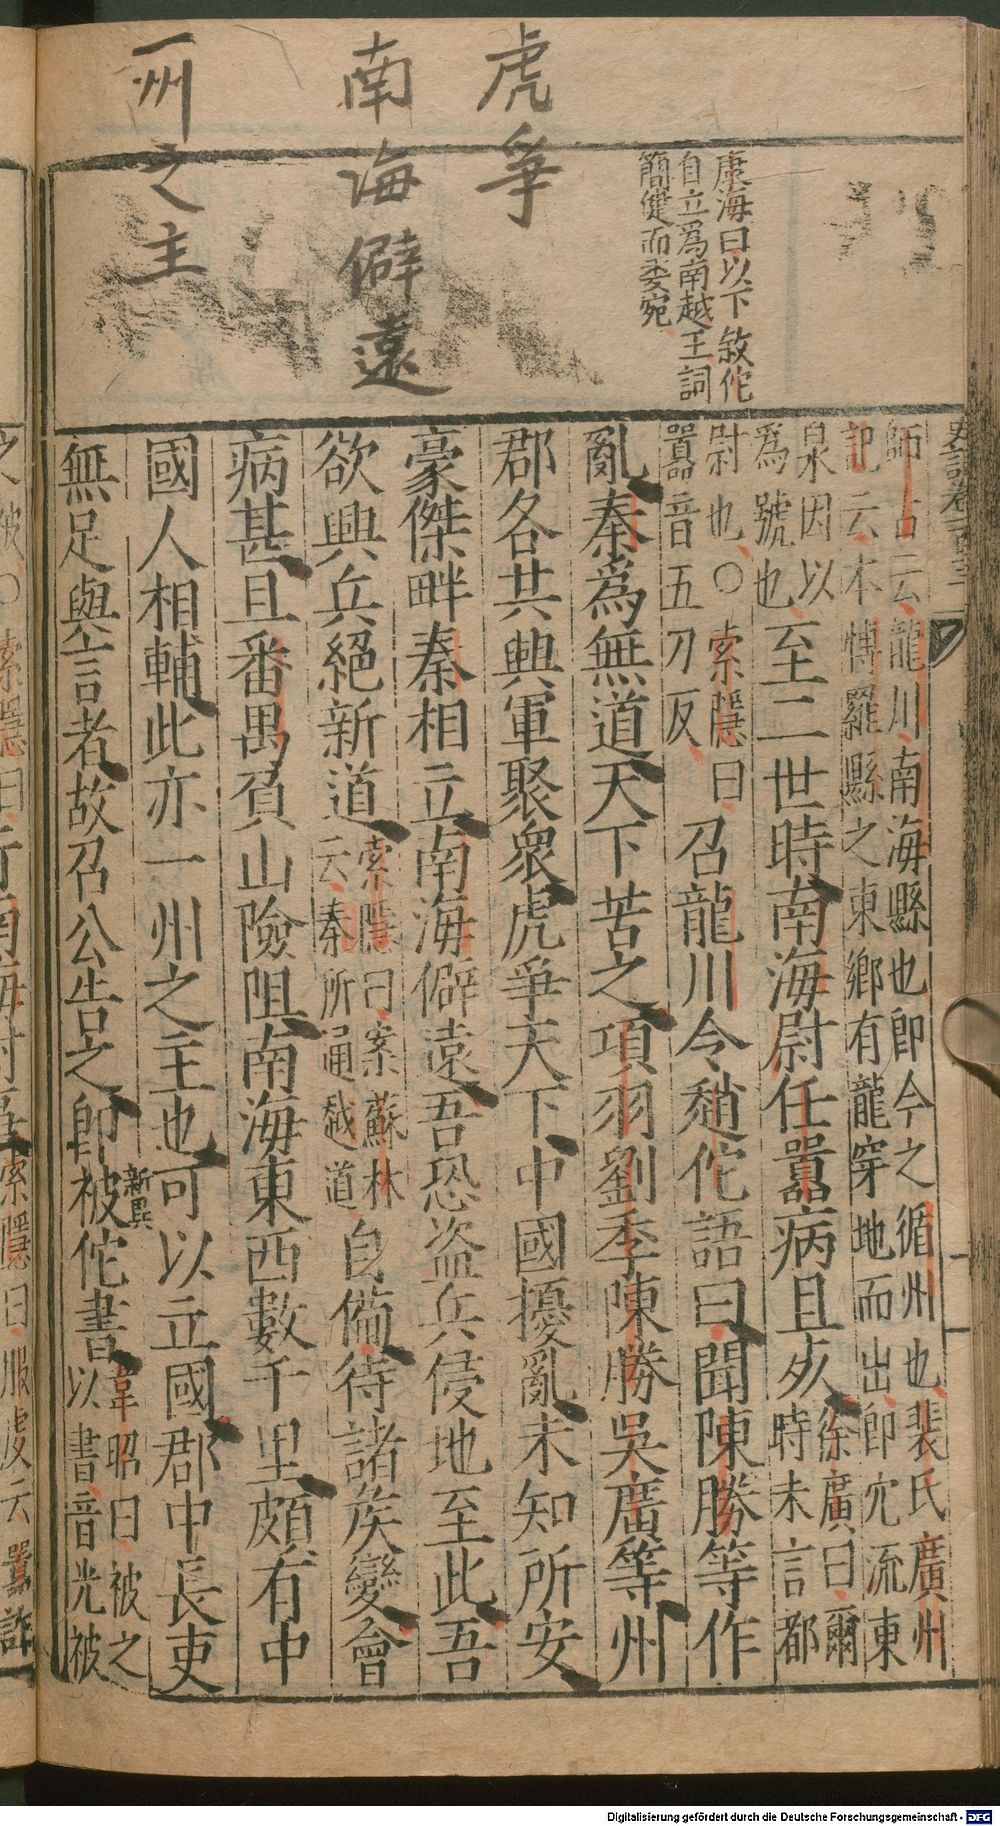 虎爭
南海僻遠
一州之主
康海曰以下敘佗
自立爲南越王詞
簡健而委宛
師古云龍川南海縣也即今之循州也裴氏廣州
記云本博羅縣之東鄉有龍穿地而出即穴流東
泉因以
爲號也
至二世時南海尉任囂病且死
徐廣曰爾
時未言都
尉也○索隱曰
囂音五刀反
召龍川令趙佗語曰聞陳勝等作
亂秦爲無道天下苦之項羽劉季陳勝吳廣等州
郡各共興軍聚衆虎爭天下中國擾亂未知所安
豪傑畔秦相立南海僻遠吾恐盜兵侵地至此吾
欲興兵絕新道
索隱曰案蘇林
云秦所通越道
自備待諸侯變會
病甚且番禺負山險阻南海東西數千里頗有中
國人相輔此亦一州之主也可以立國郡中長吏
新異
無足與言者故召公告之即被佗書
韋昭曰被之
以書音光被
之被○索隱曰
服虔云囂詐
Digitalisierung gefördert durch die Deutsche Forschungsgemeinschaft - DFG